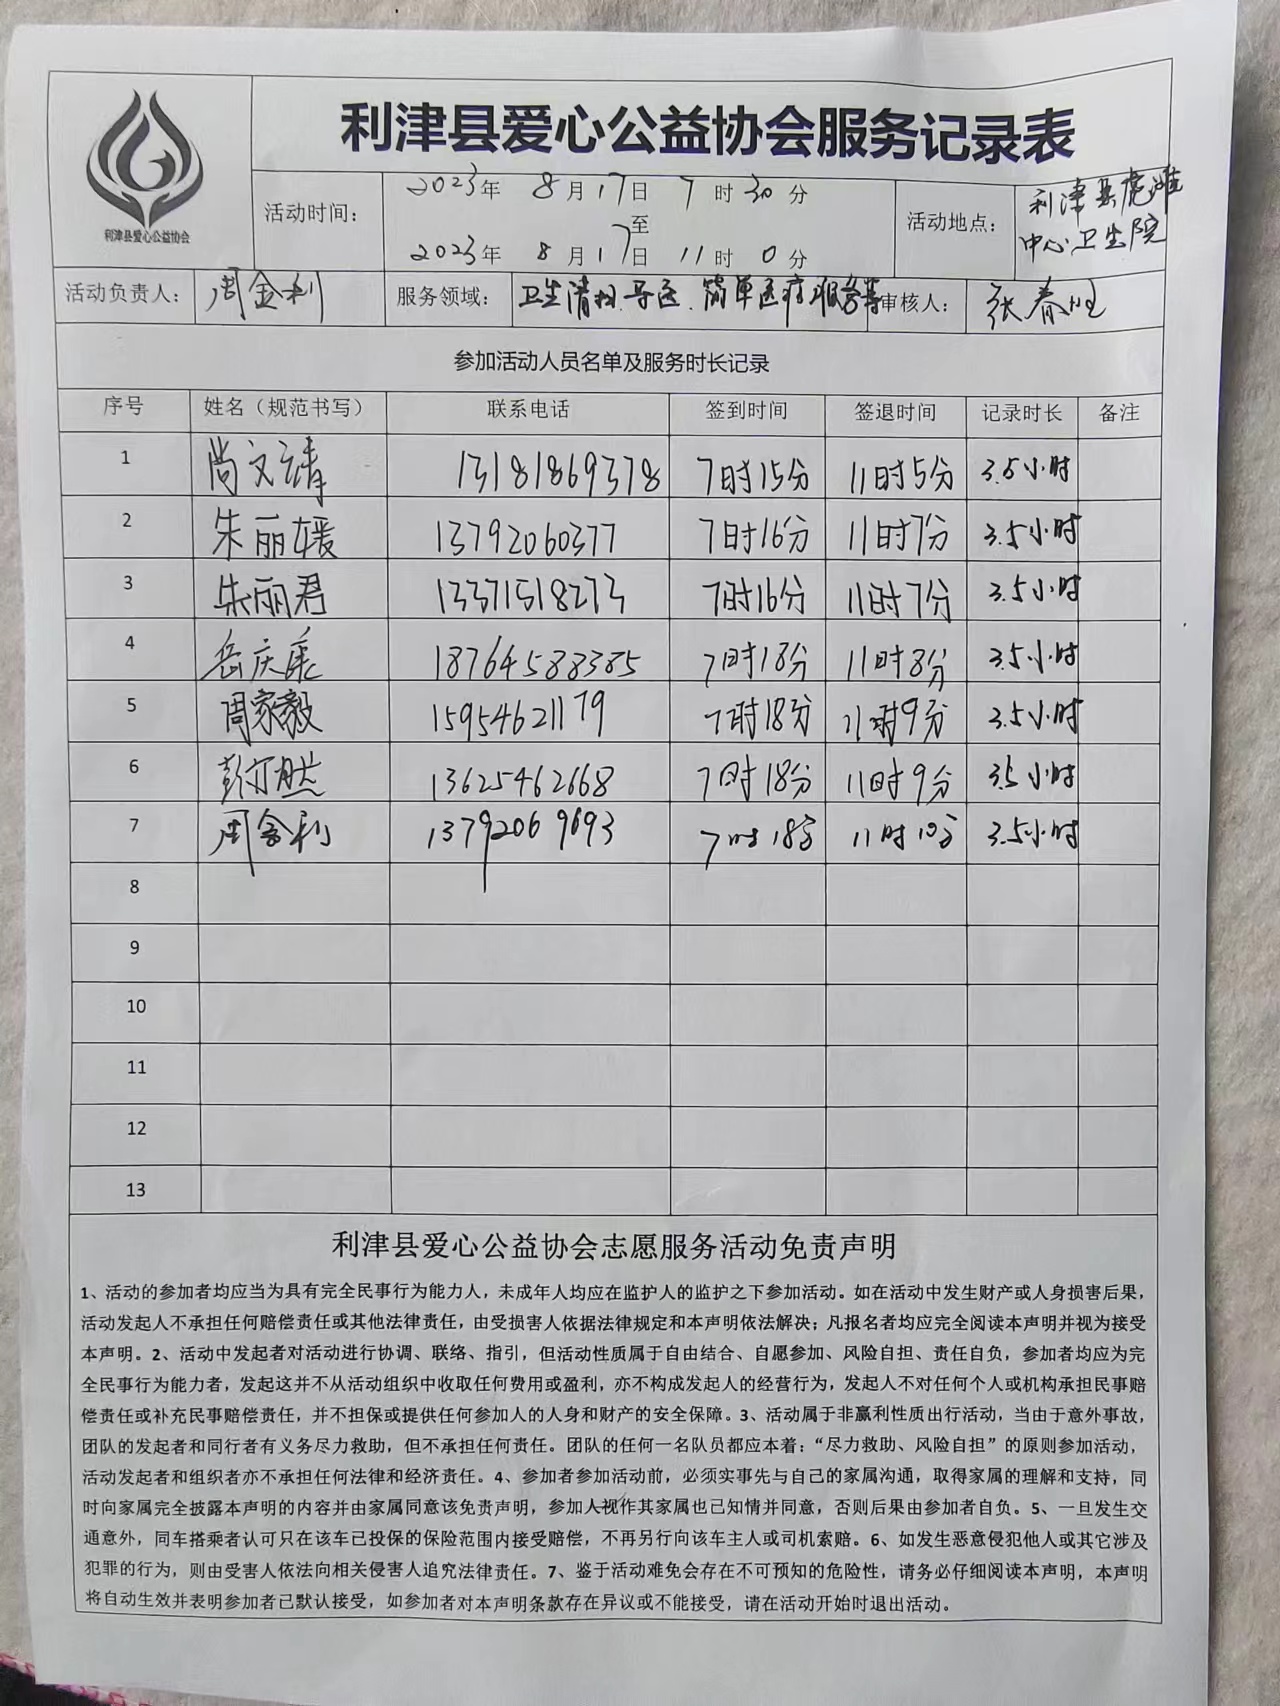 利津县爱心公益协会
利津县爱心公益协会服务记录表
活动时间：
2023年 8月17日 7时30分
至
2023年 8月17日 11时0分
活动地点：
利津县
中心卫生院
活动负责人：
周金利
服务领域：
卫生清扫、导医、简单医疗服务等
审核人：
张春
参加活动人员名单及服务时长记录
序号 姓名（规范书写） 联系电话 签到时间 签退时间 记录时长 备注
1 尚文靖 13181869378 7时15分 11时5分 3.5小时
2 朱丽媛 13792060377 7时16分 11时7分 3.5小时
3 朱丽君 13371518273 7时16分 11时7分 3.5小时
4 岳庆 18764588385 7时18分 11时8分 3.5小时
5 周家毅 15954621179 7时18分 11时9分 3.5小时
6 彭亦然 13625462668 7时18分 11时9分 3.5小时
7 周金利 13792069693 7时18分 11时10分 3.5小时
8
9
10
11
12
13
利津县爱心公益协会志愿服务活动免责声明
1、活动的参加者均应当为具有完全民事行为能力人，未成年人均应在监护人的监护之下参加活动。如在活动中发生财产或人身损害后果，
活动发起人不承担任何赔偿责任或其他法律责任，由受损害人依据法律规定和本声明依法解决；凡报名者均应完全阅读本声明并视为接受
本声明。2、活动中发起者对活动进行协调、联络、指引，但活动性质属于自由结合、自愿参加、风险自担、责任自负，参加者均应为完
全民事行为能力者，发起这并不从活动组织中收取任何费用或盈利，亦不构成发起人的经营行为，发起人不对任何个人或机构承担民事赔
偿责任或补充民事赔偿责任，并不担保或提供任何参加人的人身和财产的安全保障。3、活动属于非赢利性质出行活动，当由于意外事故，
团队的发起者和同行者有义务尽力救助，但不承担任何责任。团队的任何一名队员都应本着：“尽力救助、风险自担”的原则参加活动，
活动发起者和组织者亦不承担任何法律和经济责任。4、参加者参加活动前，必须实事先与自己的家属沟通，取得家属的理解和支持，同
时向家属完全披露本声明的内容并由家属同意该免责声明，参加人视作其家属也已知情并同意，否则后果由参加者自负。5、一旦发生交
通意外，同车搭乘者认可只在该车已投保的保险范围内接受赔偿，不再另行向该车主人或司机索赔。6、如发生恶意侵犯他人或其它涉及
犯罪的行为，则由受害人依法向相关侵害人追究法律责任。7、鉴于活动难免会存在不可预知的危险性，请务必仔细阅读本声明，本声明
将自动生效并表明参加者已默认接受，如参加者对本声明条款存在异议或不能接受，请在活动开始时退出活动。